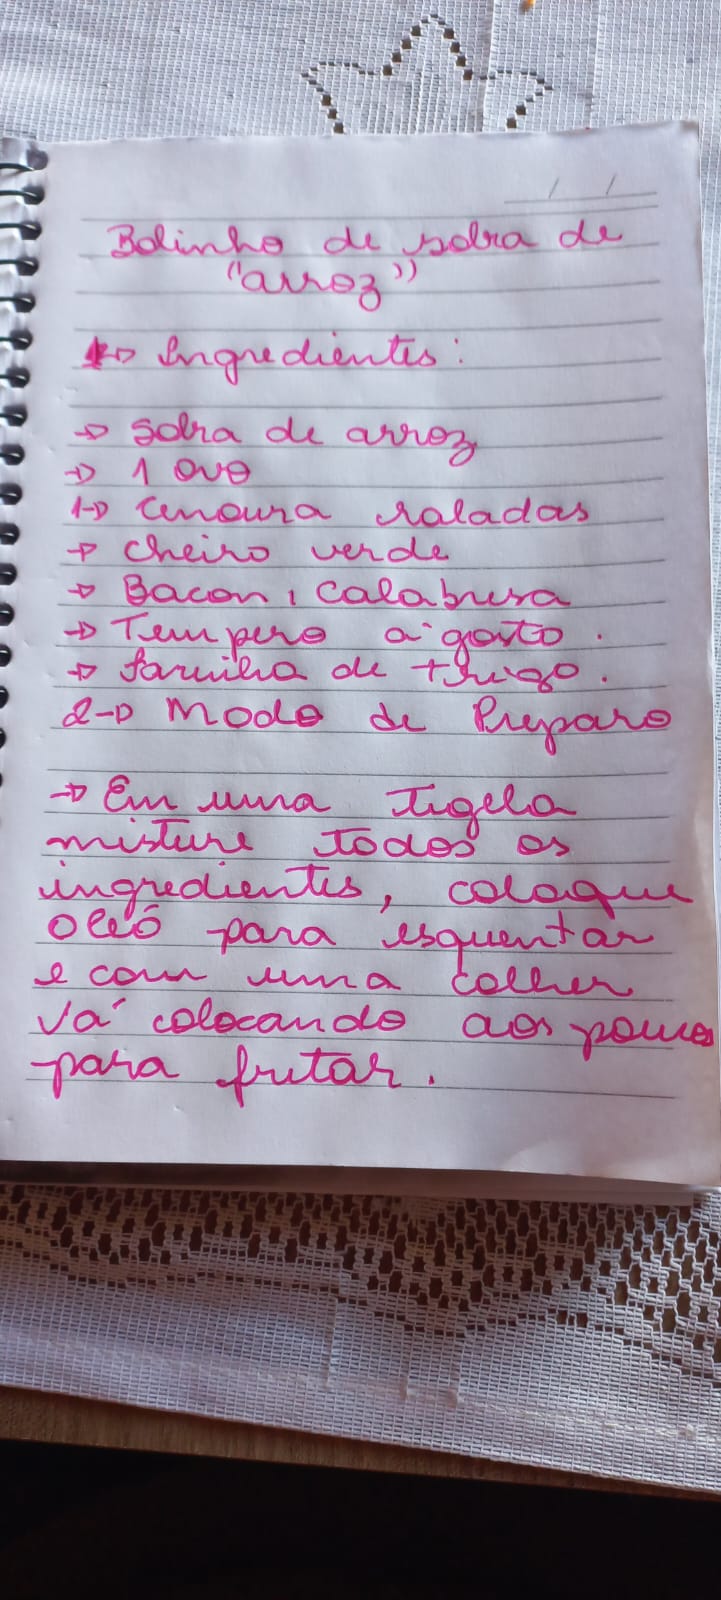 Bolinho de sobra de
"arroz"
1-> Ingredientes:
-> Sobra de arroz
-> 1 ovo
1-> Cenoura raladas
-> cheiro verde
-> Bacon, calabresa
-> Tempero a gosto.
-> farinha de trigo.
2-> Modo de Preparo
-> Em uma tigela
misture todos os
ingredientes, coloque
oleó para esquentar
e com uma colher
vá colocando aos poucos
para fritar.